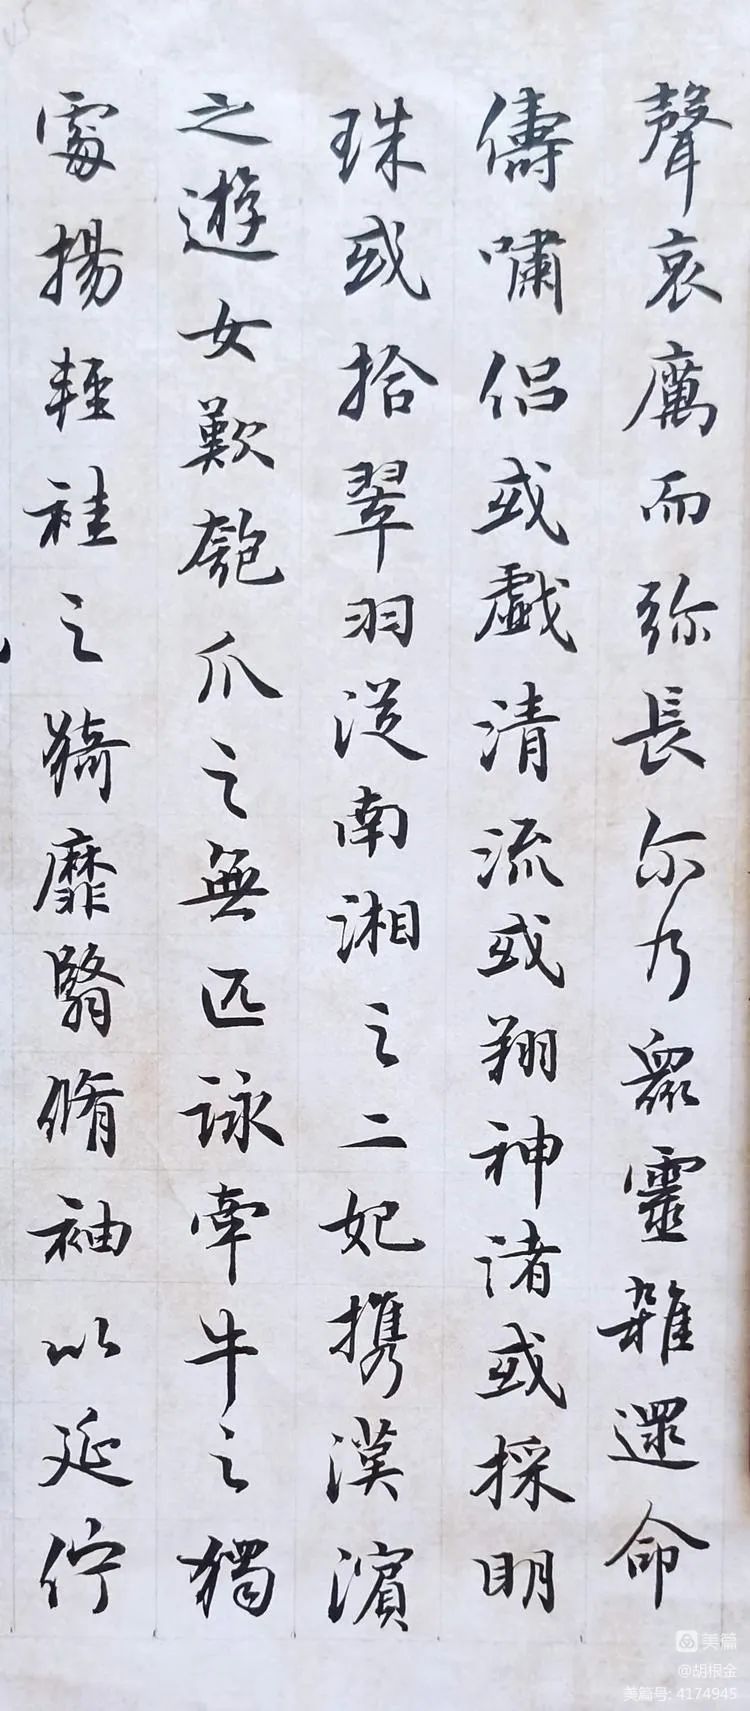 聲哀厲而弥長尔乃眾靈雜遝命
儔嘯侶或戲清流或翔神渚或採明
珠或拾翠羽從南湘之二妃携漢濱
之遊女歎匏瓜之無匹詠牽牛之獨
處揚輕袿之猗靡翳脩袖以延佇
美篇
@胡根金
美篇号: 4174945